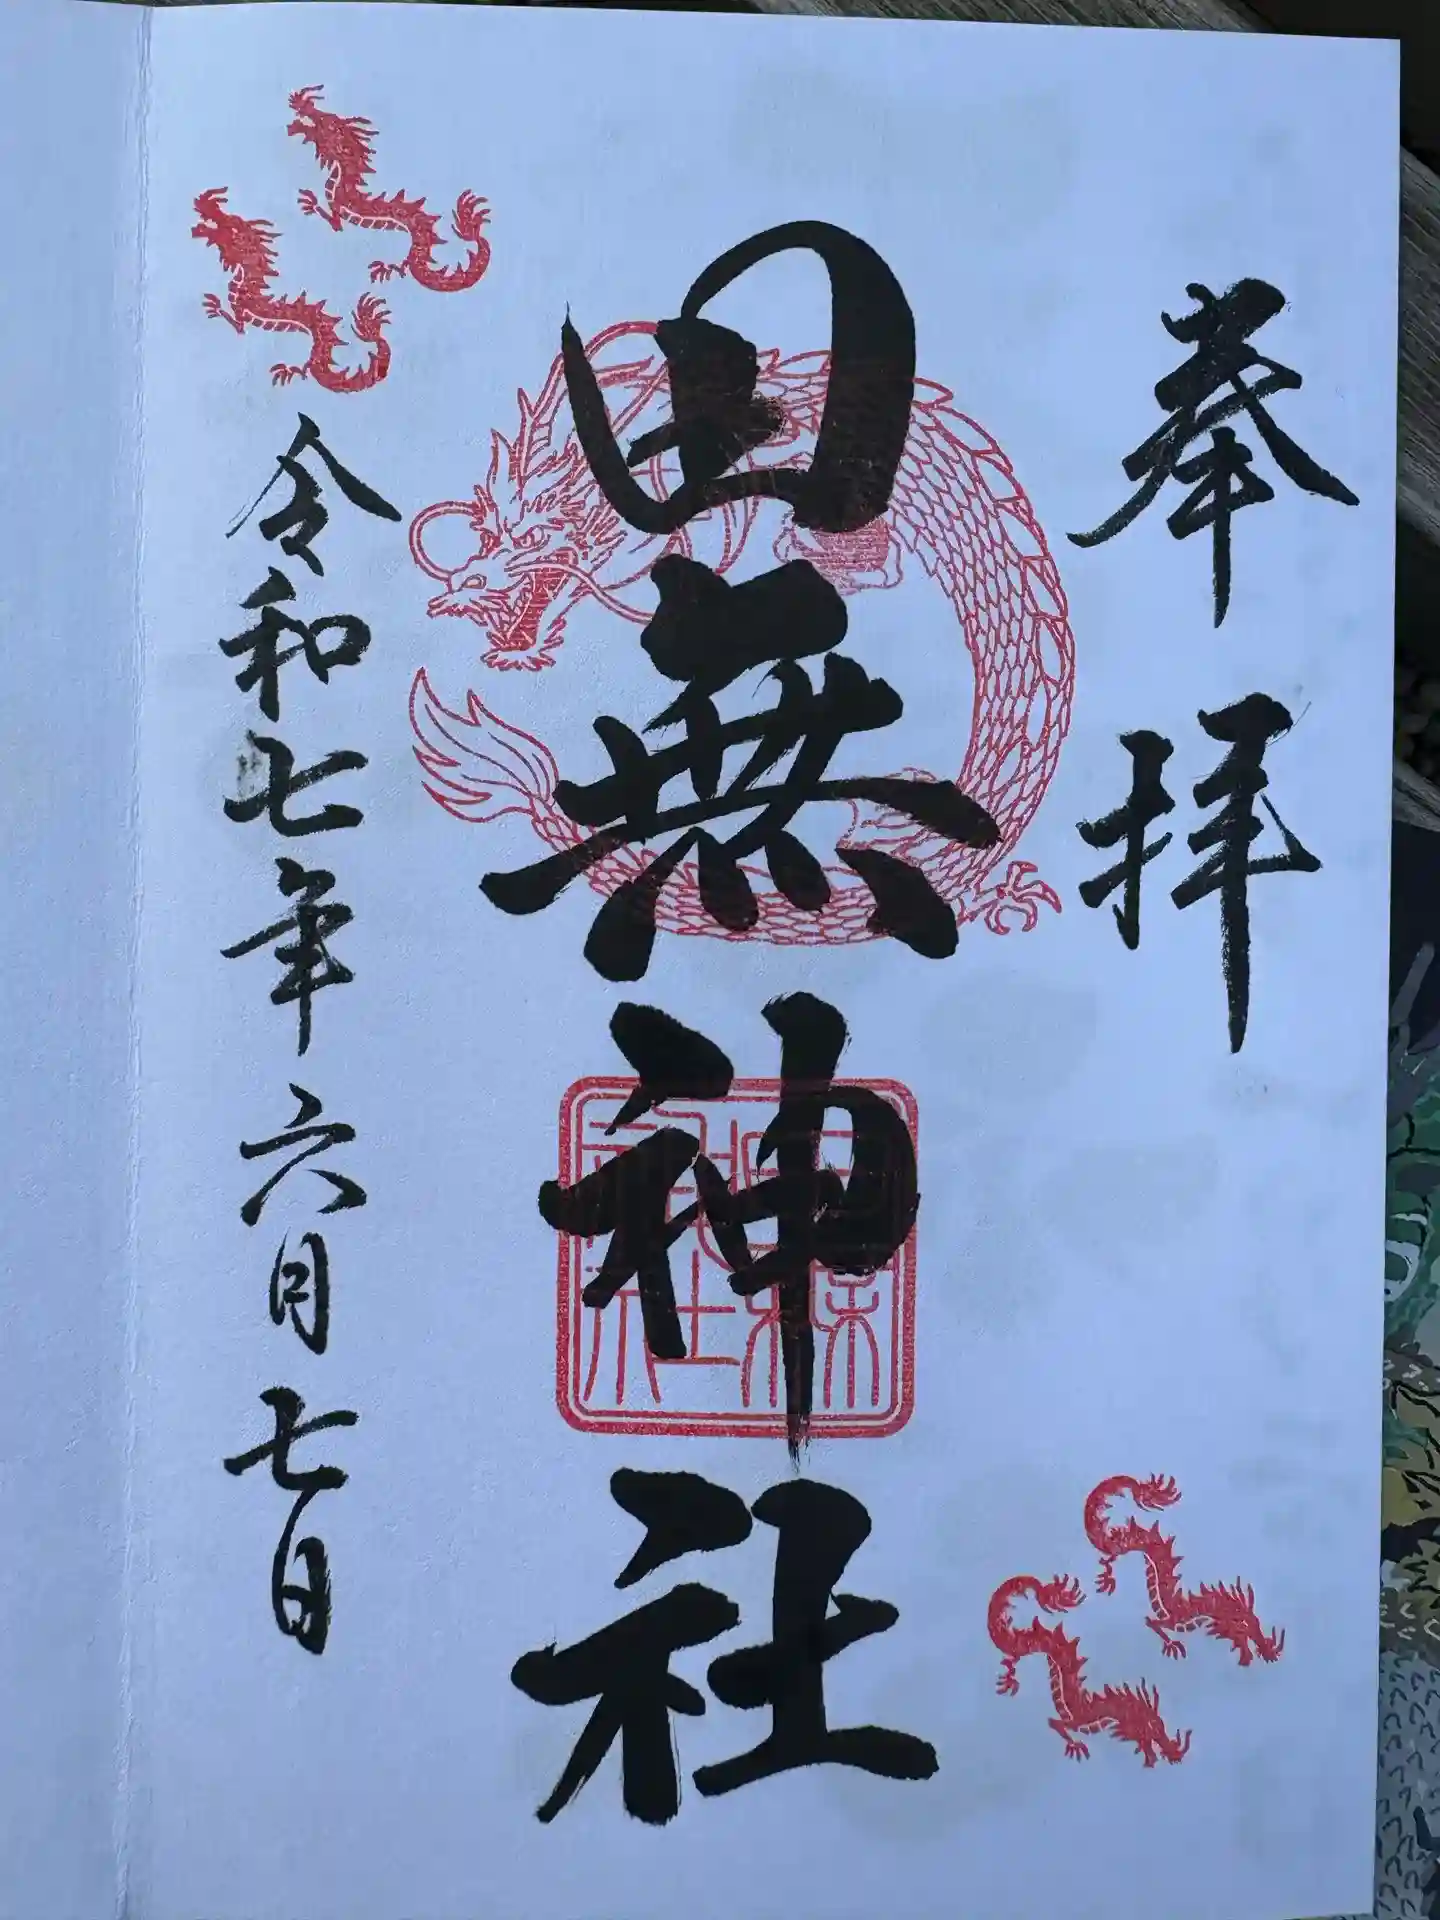 奉拝
田無神社
令和七年六月七日